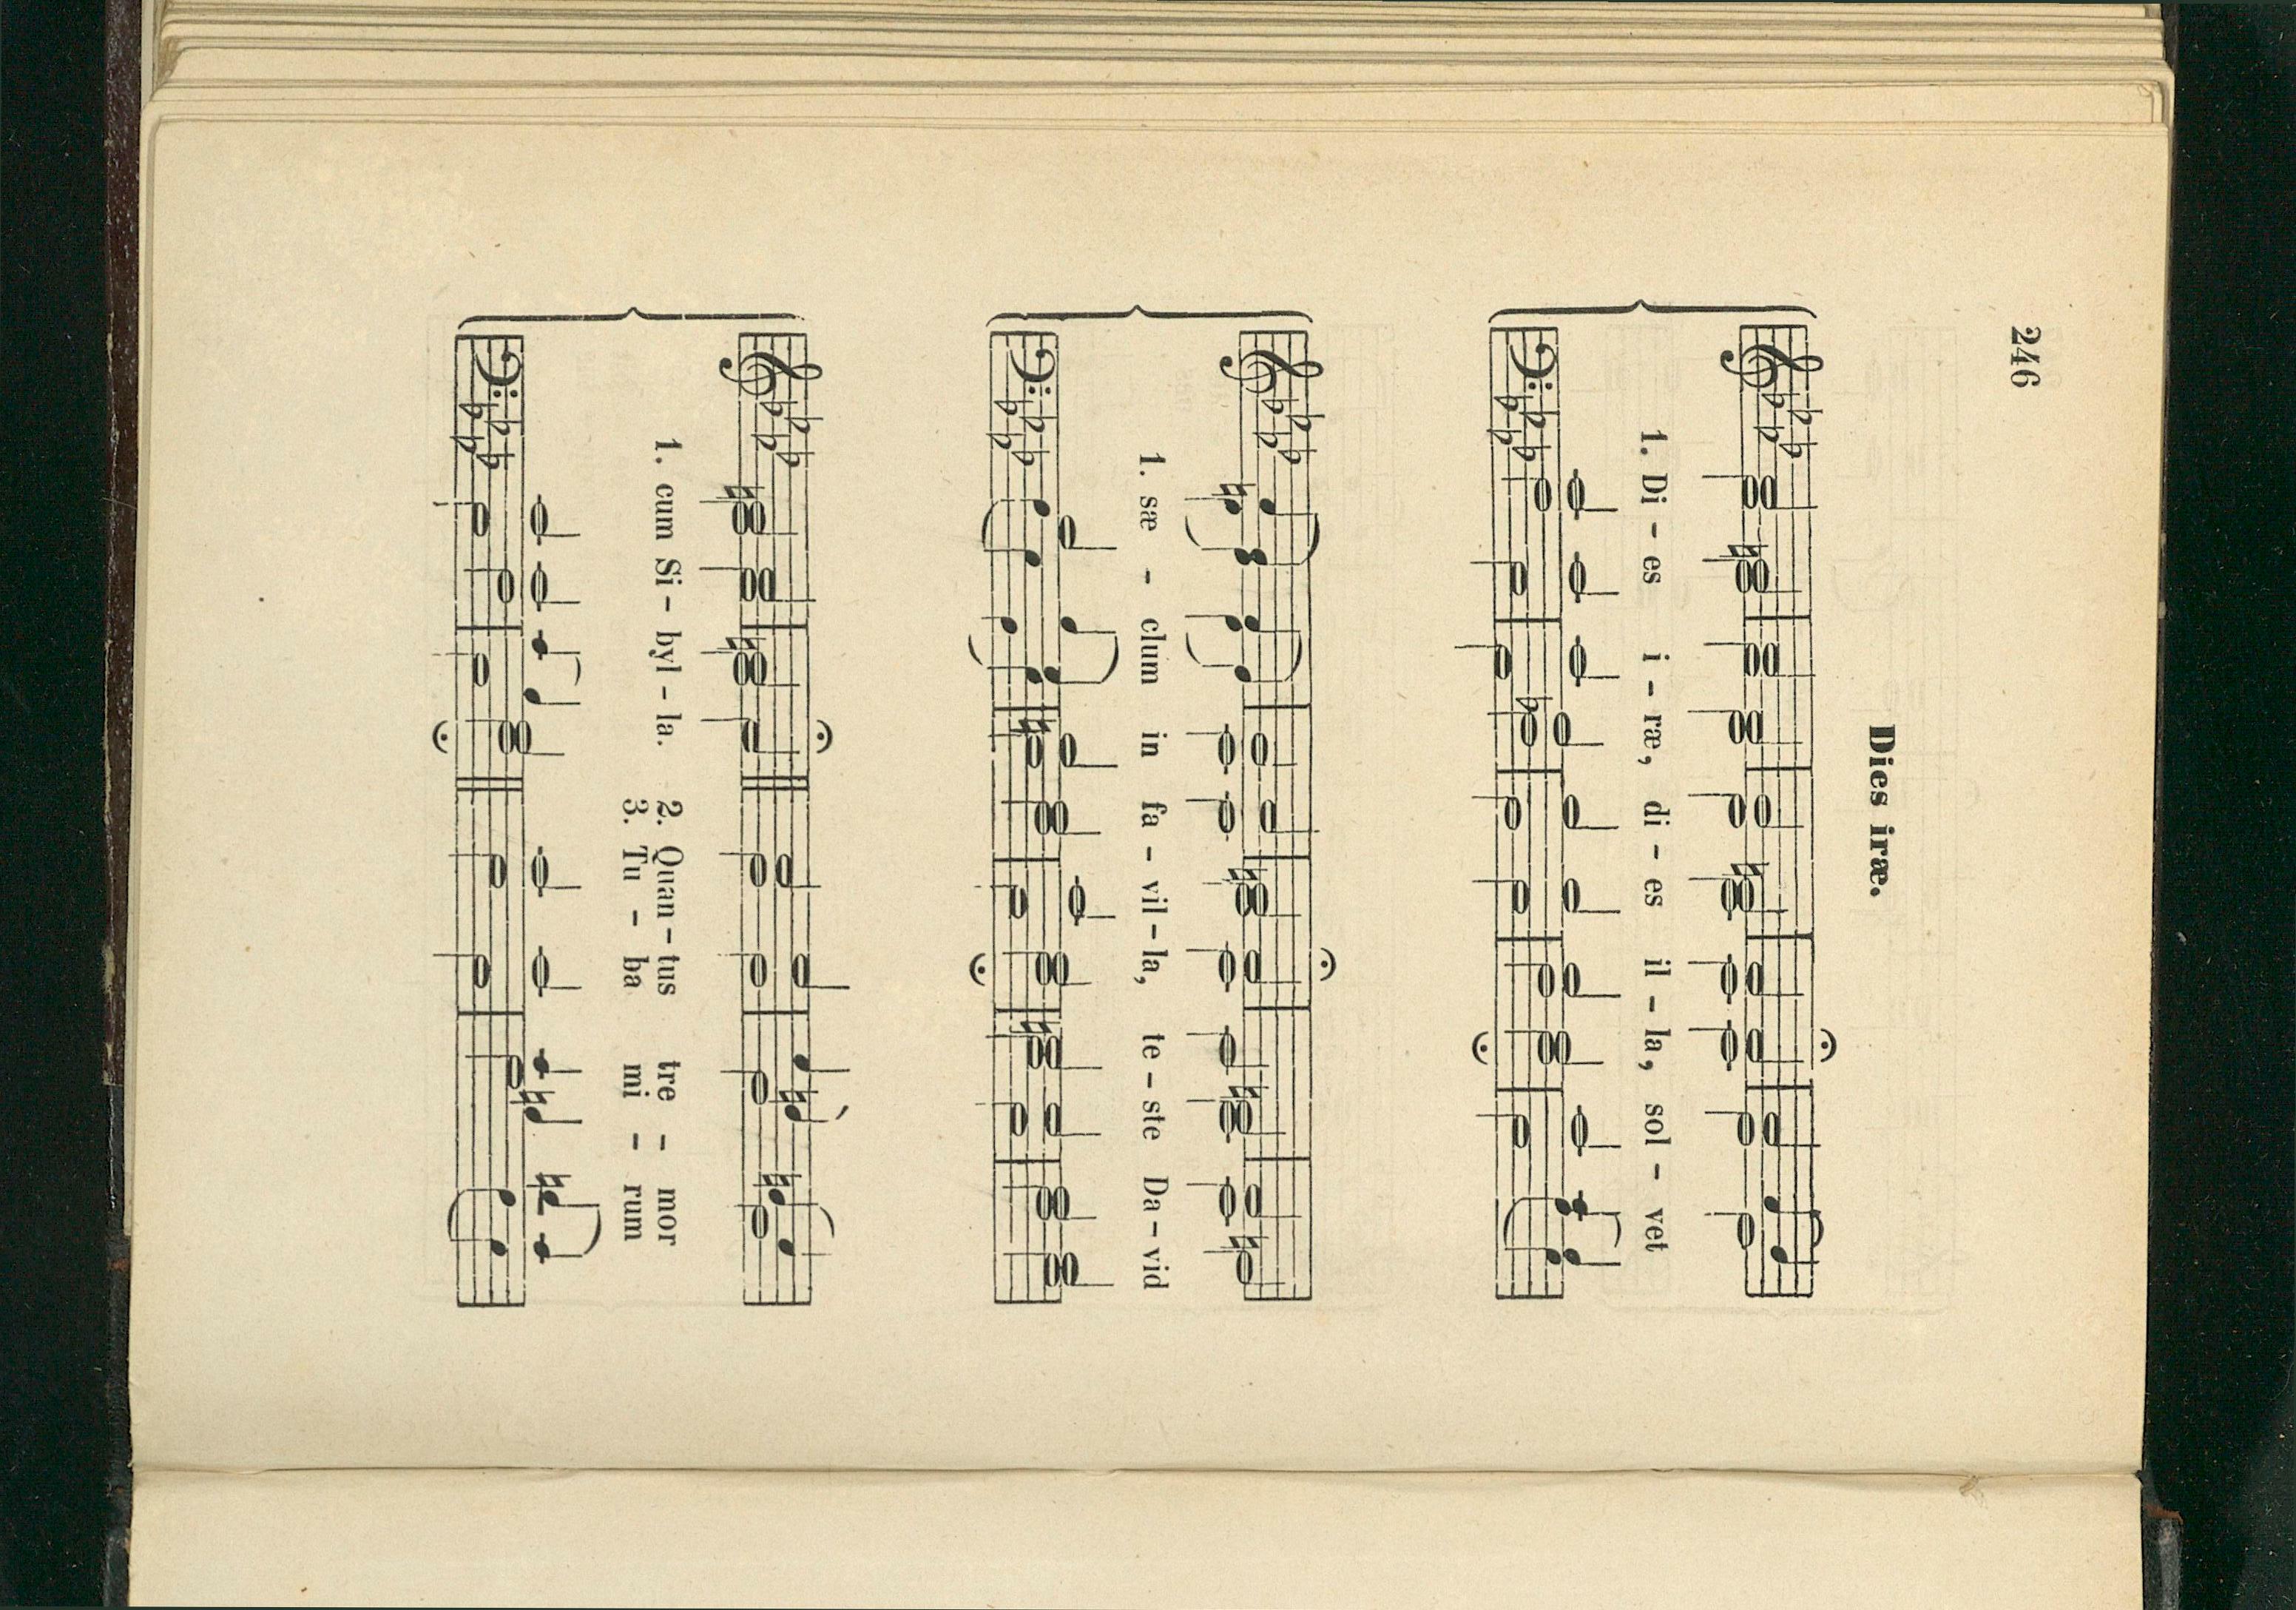 246
Dies iræ.
1. Di - es i - ræ, di - es il - la, sol - vet
1. sæ - clum in fa - vil - la, te - ste Da - vid
1. cum Si - byl - la. 2. Quan - tus tre - mor
3. Tu - ba mi - rum